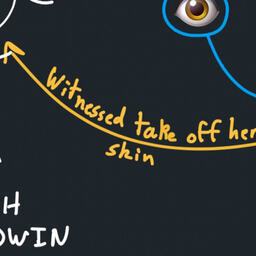 Witnessed take off her
skin
H
OWIN